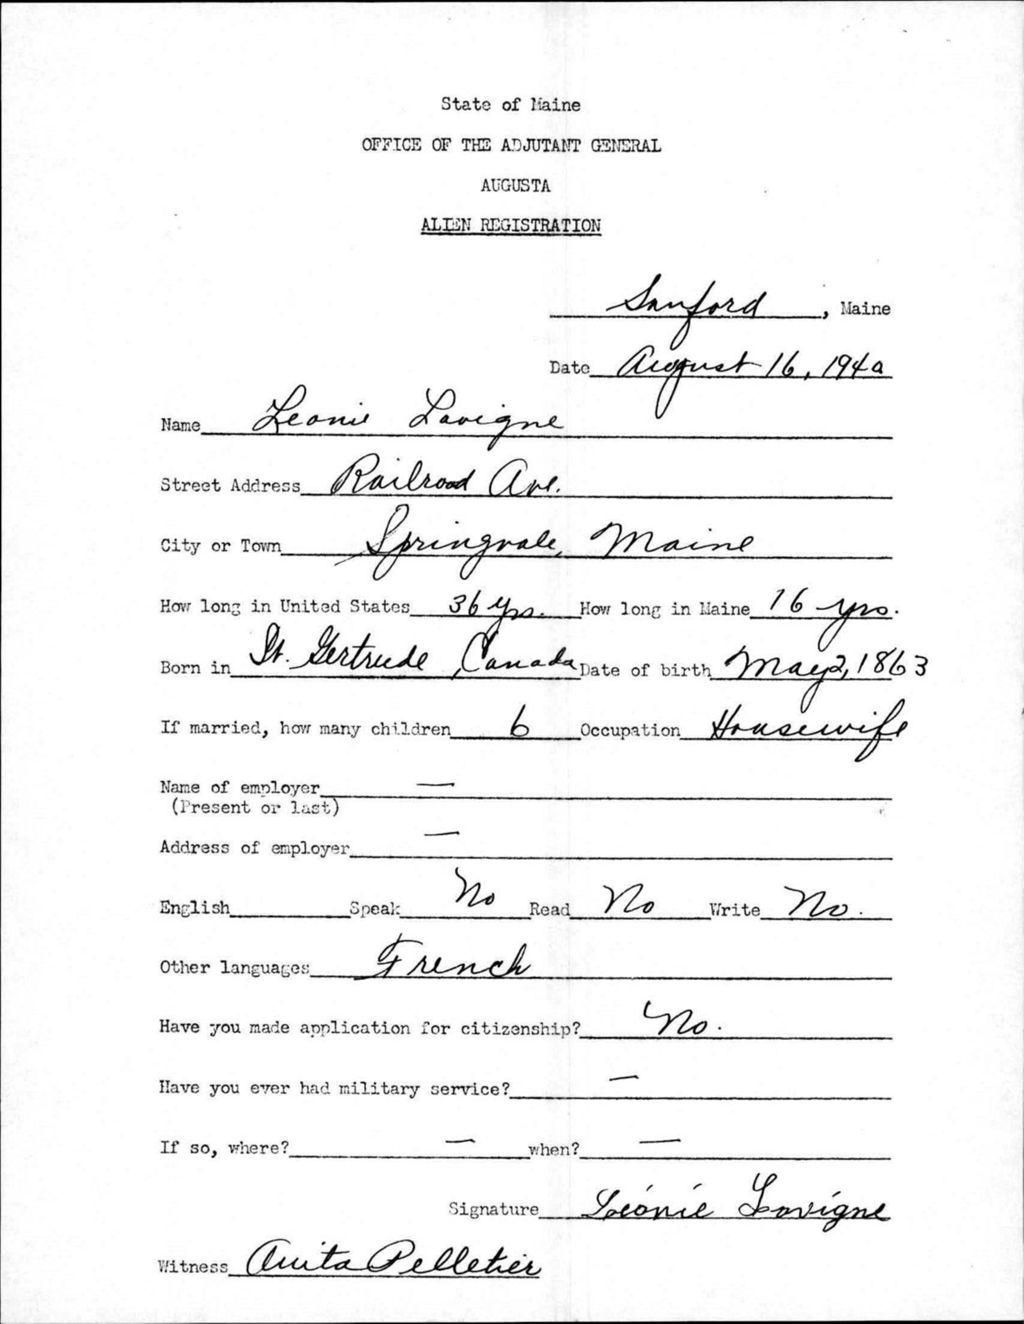 State of Maine
OFFICE OF THE ADJUTANT GENERAL
AUGUSTA
ALIEN REGISTRATION
Sanford, Maine
Date August 16, 1940
Name Leonie Lavigne
Street Address Railroad Ave.
City or Town Springvale, Maine
How long in United States 36 yrs. How long in Maine 16 yrs.
Born in St. Gertrude, Canada Date of birth May 2, 1863
If married, how many children 6 Occupation Housewife
Name of employer —
(Present or last)
Address of employer —
English Speak No Read No Write No.
Other languages French
Have you made application for citizenship? No.
Have you ever had military service? —
If so, where? — when? —
Signature Léonie Lavigne
Witness Anita Pelletier